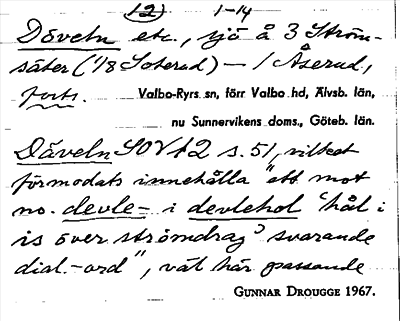 (2) 1-14
Däveln etc., sjö å 3 Ström-
säter (1/8 Soterud) – 1 Åserud,
forts. Valbo-Ryrs sn, förr Valbo hd, Älvsb. län,
nu Sunnervikens doms., Göteb. län.
Däveln SOV 12 s. 51, vilket
förmodats innehålla "ett mot
no. devle- i devlehol 'hål i
is över strömdrag' svarande
dial.-ord", väl här passande
GUNNAR DROUGGE 1967.